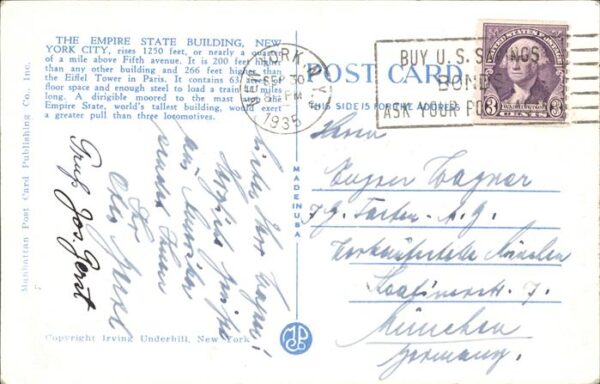 THE EMPIRE STATE BUILDING, NEW
YORK CITY, rises 1250 feet, or nearly a quarter
of a mile above Fifth avenue. It is 200 feet higher
than any other building and 266 feet higher than
the Eiffel Tower in Paris. It contains 63 acres
floor space and enough steel to load a train miles
long. A dirigible moored to the mast of the
Empire State, world's tallest building, would exert
a greater pull than three locomotives.
Manhattan Post Card Publishing Co., Inc.
Copyright Irving Underhill, New York
MADE IN USA
POST CARD
THIS SIDE IS FOR THE ADDRESS
NEW YORK, N.Y.
SEP 30
PM
1935
BUY U.S. SAVINGS
BONDS
ASK YOUR PO
UNITED STATES POSTAGE
3 CENTS 3
Lieber Herr Wagner!
Herzliche Grüße
aus Amerika
sendet Ihnen
Ihr
Otto
Gruß Jos.
Herrn
Eugen Wagner
I.G. Farben - A.G.
Verkaufsstelle München
7.
München
Germany.